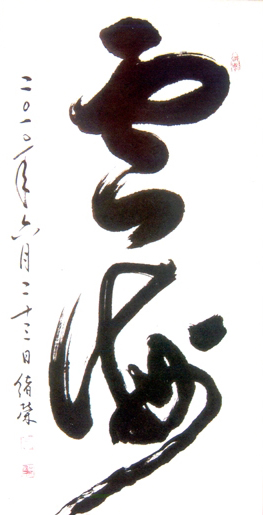 雲海
二〇一〇年六月二十三日绪荣